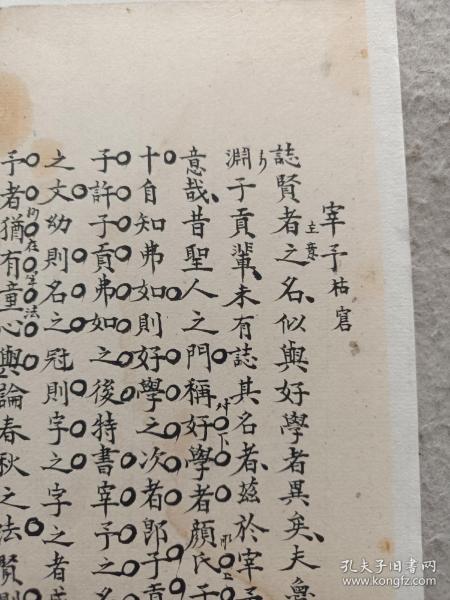 宰子枯窘
誌賢者之名、似與好學者異矣、夫魯
主意
淵子貢輩、未有誌其名者、茲於宰予
意哉、昔聖人之門、稱好學者顏氏子
十自知弗如則好學之次者郎子貢
子許子貢弗如之後特書宰予之名
之文幼則名之冠則字之字之者
予者猶有童心與論春秋之法賢則
孔夫子旧书网
www.kongfz.com